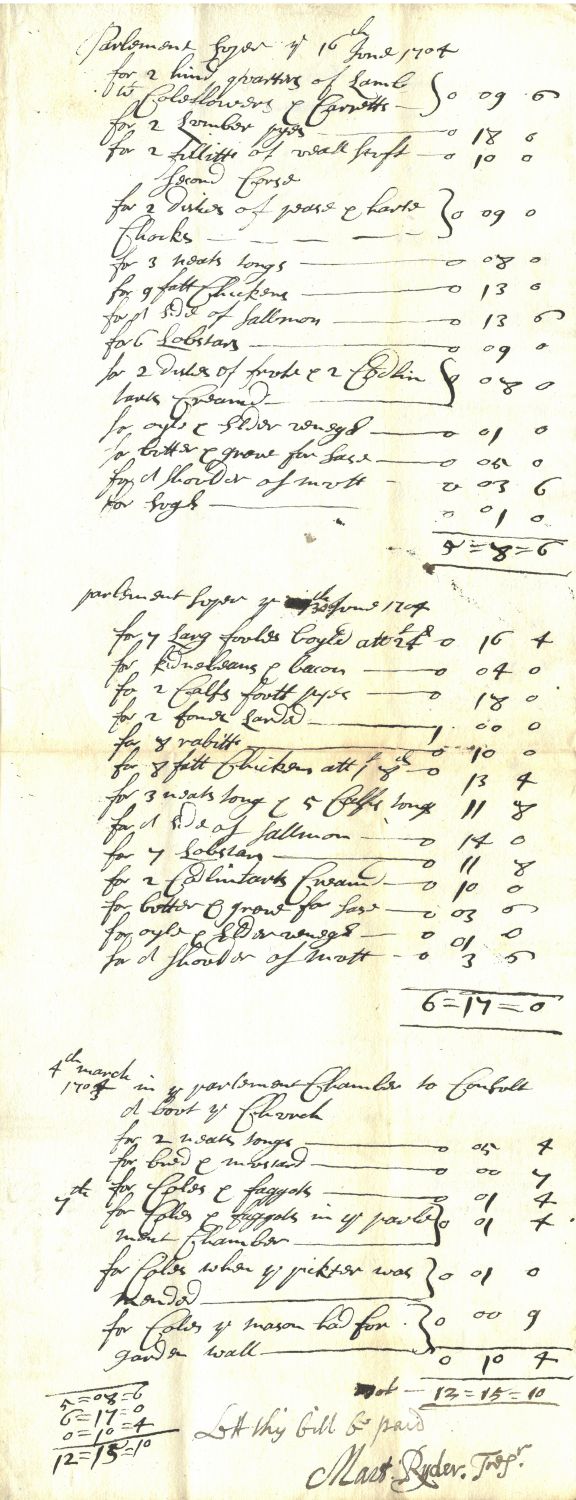 Parlement super yͤ 16th June 1704
for 2 hind quarters of Lamb
wᵗʰ Coleflowers & Carretts — 0 09 6
for 2 Lumber pyes — 0 18 0
for 2 fillitts of veall stuft — 0 10 0
Second Corse
for 2 dishes of pease & harte
Chocks — 0 09 0
for 3 neats tongs — 0 08 0
for 9 fatt Chickens — 0 13 0
for a side of Sallmon — 0 13 6
for 6 Lobstars — 0 09 0
for 2 dishes of frute & 2 Codlin
tarts Creamd — 0 08 0
for oyle & Elder veneg — 0 01 0
for butter & grave for sase — 0 05 0
for a shoulder of mott — 0 03 6
for Sugh — 0 01 0
5=8=6
parlement super yͤ 30th June 1704
for 7 Larg foules boyld att 2s 4d 0 16 4
for kidnebeans & bacon — 0 04 0
for 2 Calfs foott pyes — 0 18 0
for 2 Larded — 1 00 0
for 8 rabitts — 0 10 0
for 8 fatt Chickens att 1s 8d — 0 13 4
for 3 neats tong & 5 Calfs tong 11 8
for a side of Sallmon — 0 14 0
for 7 Lobstars — 0 11 8
for 2 Codlintarts Creamd — 0 10 0
for botter & grave for sase — 0 03 6
for oyle & Elder veneg — 0 01 0
for a shoulder of mott — 0 3 6
6=17=0
4th march
1703/4 in yͤ parlement Chamber to Consolt
a boot yͤ Church
for 2 neats tongs — 0 05 4
for bred & mustard — 0 00 7
for Coles & faggots — 0 01 4
7th for Coles & faggots in yͤ parle
ment Chamber — 0 01 4
for Coles when yͤ pickter was
mended — 0 01 0
for Coles yͤ mason had for
garden wall — 0 00 9
0 10 4
12=15=10
5=08=6
6=17=0
0=10=4
12=15=10
Lett this bill be paid
Mart. Ryder. Tresʳ